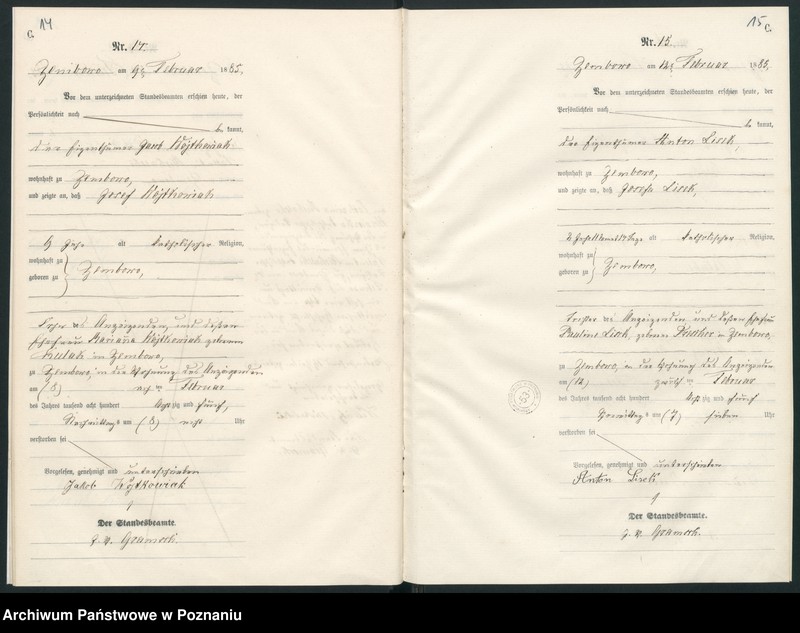 C. 14
Nr. 14.
Zembowo am 9ten Februar 1885,
Vor dem unterzeichneten Standesbeamten erschien heute, der
Persönlichkeit nach
be kannt,
der Eigenthümer Wojtkowiak
wohnhaft zu Zembowo,
und zeigte an, daß Josef Wojtkowiak
Jahr alt katholischer Religion,
wohnhaft zu
geboren zu Zembowo,
Anzeigenden, und dessen
Ehefrau Marianna Wojtkowiak geborenen
in Zembowo,
zu Zembowo, in der Wohnung des Anzeigenden
am (8) acht ten Februar
des Jahres tausend acht hundert achtzig und fünf,
Nachmittags um (8) acht Uhr
verstorben sei
Vorgelesen, genehmigt und unterschrieben
Jakob Wojtkowiak
Der Standesbeamte.
15 C.
Nr. 15.
Zembowo am 12ten Februar 1885,
Vor dem unterzeichneten Standesbeamten erschien heute, der
Persönlichkeit nach
be kannt,
der Eigenthümer Anton Lisek,
wohnhaft zu Zembowo,
und zeigte an, daß Josefa Lisek,
alt katholischer Religion,
wohnhaft zu
geboren zu Zembowo,
Tochter des Anzeigenden und dessen Ehefrau
Lisek, geborenen in Zembowo,
zu Zembowo, in der Wohnung des Anzeigenden
am (12) zwölf ten Februar
des Jahres tausend acht hundert achtzig und fünf
Vormittags um (7) sieben Uhr
verstorben sei
Vorgelesen, genehmigt und unterschrieben
Anton
Der Standesbeamte.
Archiwum Państwowe w Poznaniu